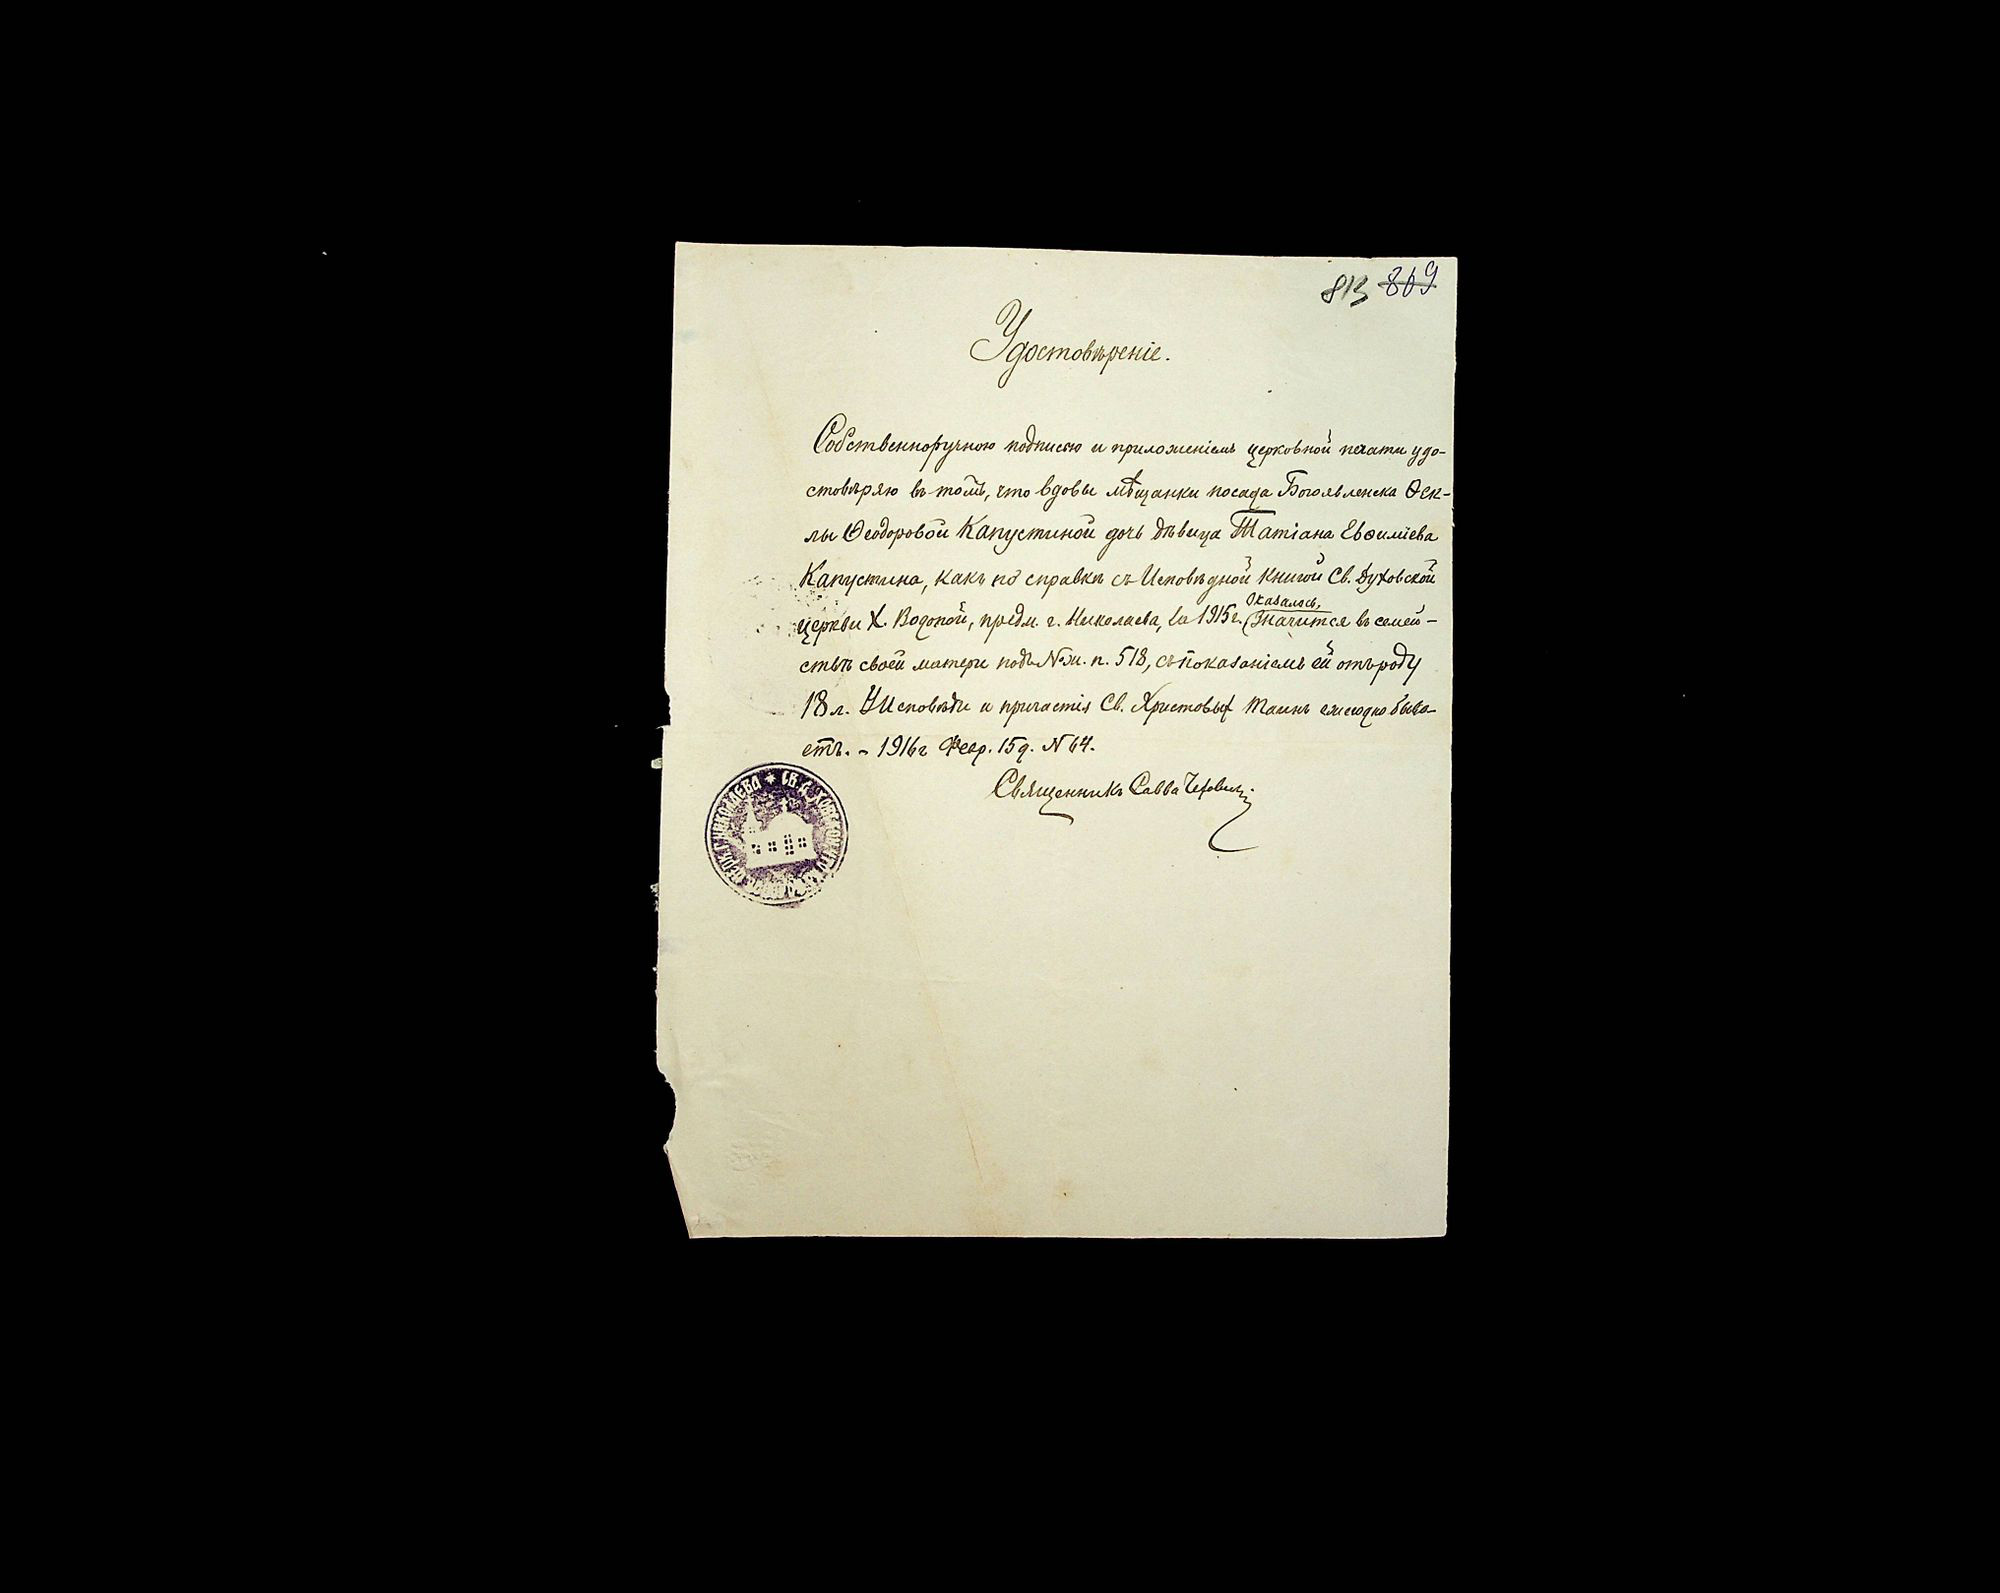 813 869
Удостовѣреніе.
Собственноручною подписью и приложеніемъ церковной печати удо-
стовѣряю въ томъ, что вдовы мѣщанки посада Богоявленска Ѳек-
лы Ѳеодоровой Капустиной дочь дѣвица Татіана Евѳиміева
Капустина, какъ по справкѣ съ Исповѣдной книгой Св. Духовской
оказалось,
церкви Х. Водопой, предм. г. Николаева, за 1915 г. значится въ семей-
ствѣ своей матери подъ № ж. п. 518, съ показаніемъ ей отъ роду
18 л. У Исповѣди и причастія Св. Христовых Таинъ ежегодно быва-
етъ. - 1916 г Февр. 15 д. N 64.
Священникъ Савва
НИКОЛАЕВА * СВ. ДУХОВСКОЙ